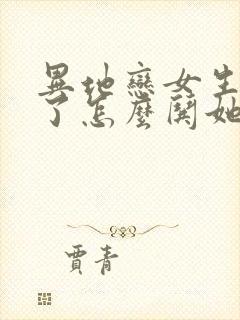 異地戀女生
了怎麼鬨她
賈青